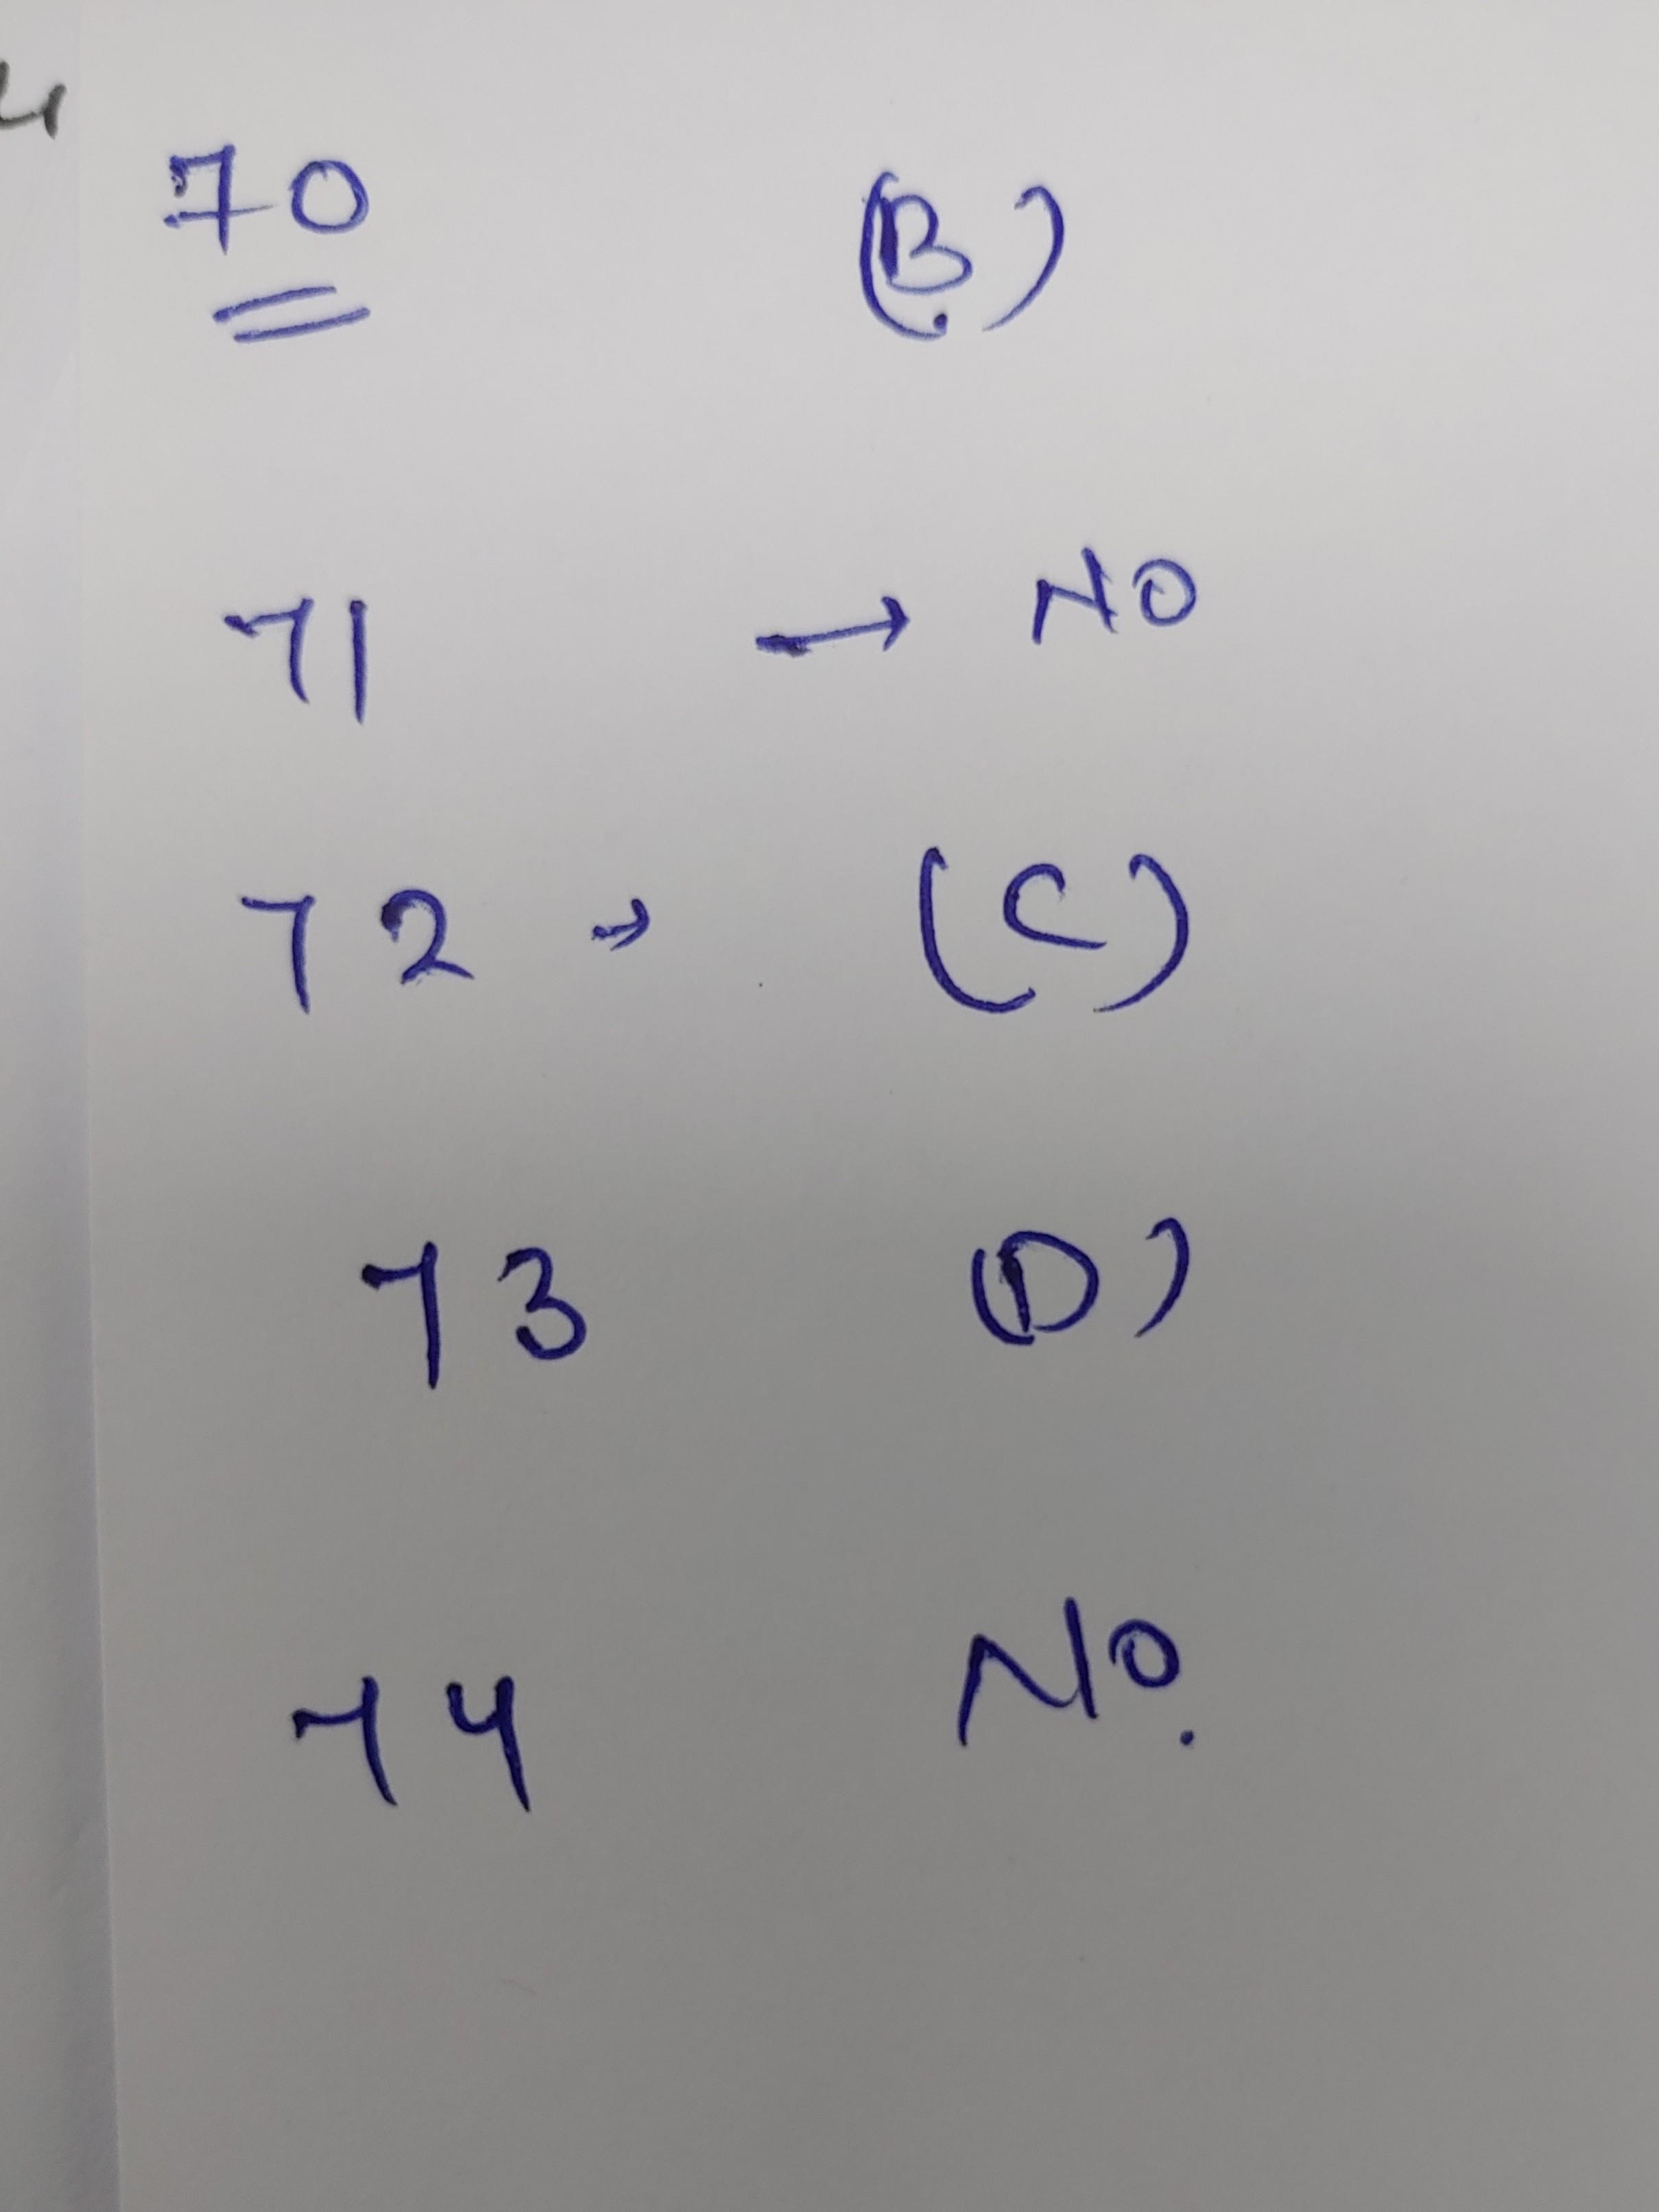 70 (B.)
71 → NO
72 → (C)
73 (D)
74 No.